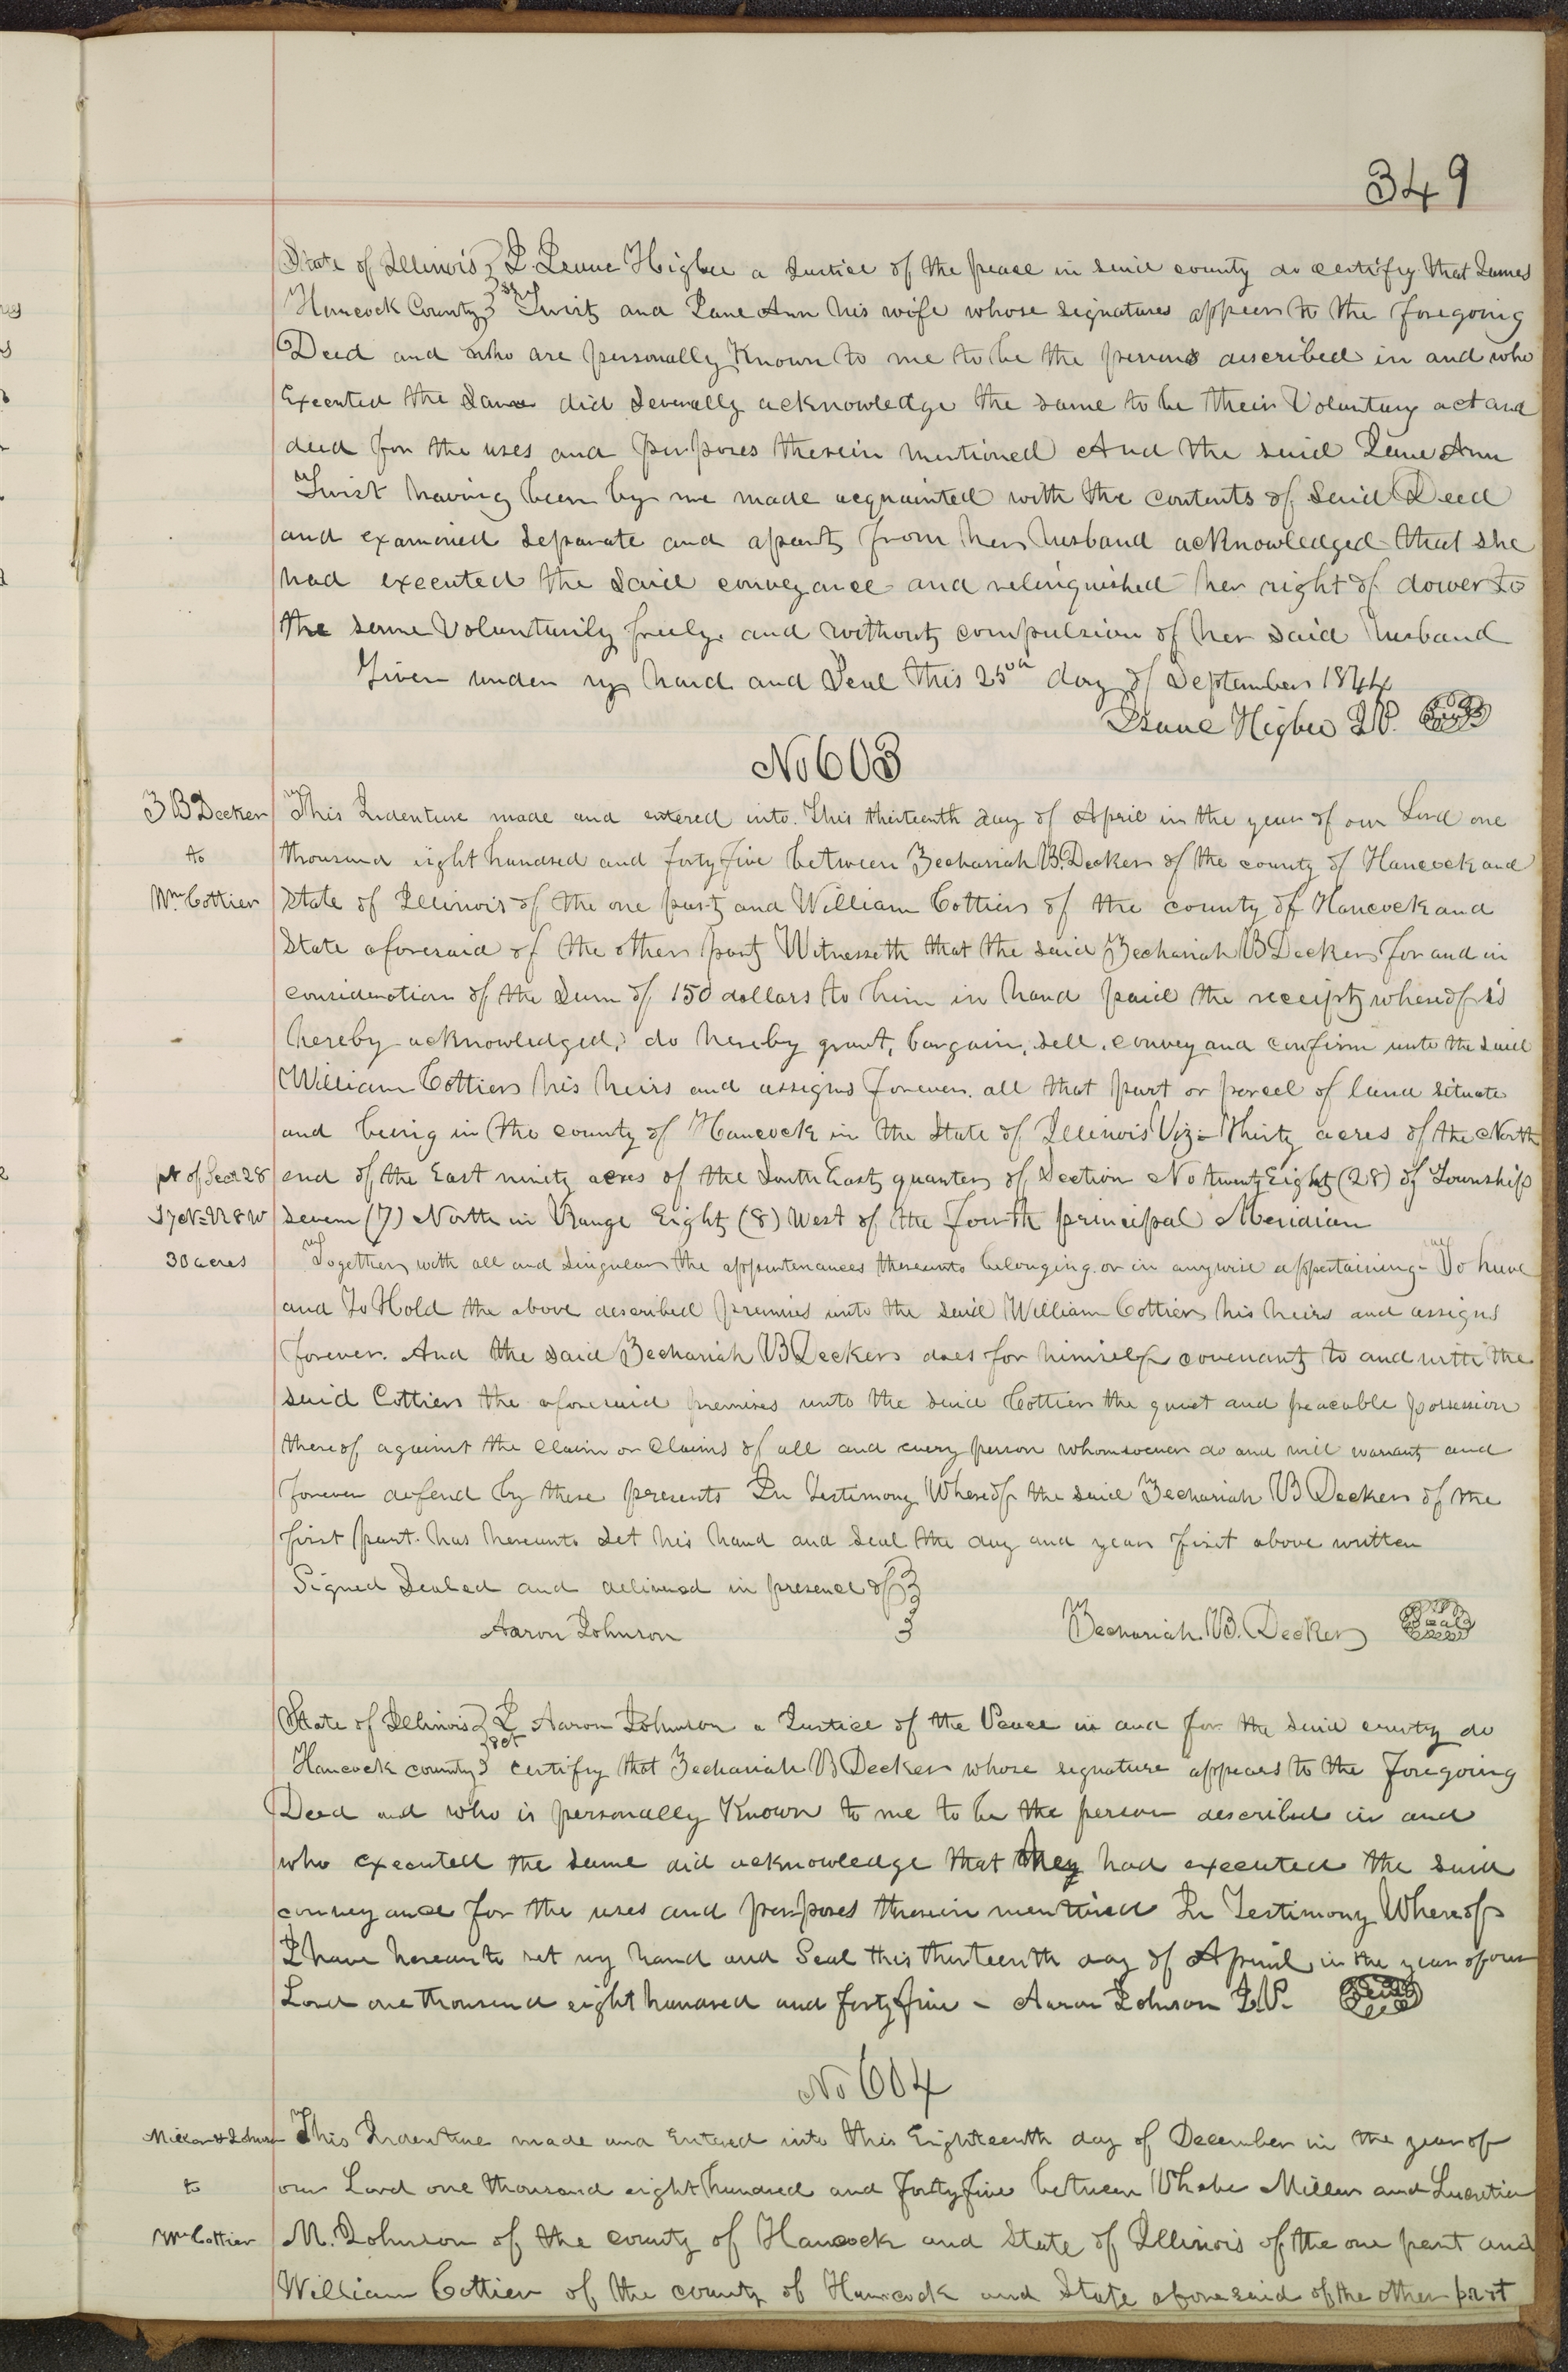 349
State of Illinois } I. Isaac Higbee a Justice of the peace in said county do certify that James
Hancock County } Twist and Jane Ann his wife whose signatures appear to the foregoing
Deed and who are personally Known to me to be the persons described in and who
Executed the Same did Severally acknowledge the same to be their Voluntary act and
deed for the uses and purposes therein mentioned And the said Jane Ann
Twist having been by me made acquainted with the contents of Said Deed
and examined Separate and apart from her husband acknowledged that she
had executed the Said conveyance and relinquished her right of dower to
the same Voluntarily freely and without compulsion of her said husband
Given under my hand and Seal this 25th day of September 1844
Isaac Higbee J.P. Seal
No 603
Z B Decker
to
Wm Cottier
This Indenture made and entered into. This thirteenth day of April in the year of our Lord one
thousand eight hundred and forty five between Zechariah B. Decker of the county of Hancock and
State of Illinois of the one part and William Cottier of the county of Hancock and
State aforesaid of the other part Witnesseth that the said Zechariah B Decker for and in
consideration of the Sum of 150 dollars to him in hand paid the receipt whereof is
hereby acknowledged, do hereby grant, bargain, sell, convey and confirm unto the said
William Cottier his heirs and assigns forever. all that part or parcel of land situate
and being in the county of Hancock in the State of Illinois Viz- Thirty acres of the North
pt of Sec 28
T7N=R8W
30 acres
end of the East ninety acres of the South East quarter of Section No twenty Eight (28) of Township
Seven (7) North in Range Eight (8) West of the fourth principal Meridian
Together with all and Singular the appurtenances thereunto belonging or in anywise appertaining- To have
and To Hold the above described premises unto the said William Cottier his heirs and assigns
forever. And the said Zechariah B Decker does for himself covenant to and with the
said Cottier the aforesaid premises unto the said Cottier the quiet and peaceable possession
thereof against the claim or Claims of all and every person whomsoever do and will warrant and
forever defend by these presents In Testimony Whereof the said Zechariah B Decker of the
first part. has hereunto Set his hand and Seal the day and year first above written
Signed Sealed and delivered in presence of }
Aaron Johnson
Zechariah. B. Decker Seal
State of Illinois } I Aaron Johnson a Justice of the Peace in and for the said county do
Hancock county } sct certify that Zechariah B Decker whose signature appears to the foregoing
Deed and who is personally Known to me to be the person described in and
who executed the same did acknowledge that they had executed the said
conveyance for the uses and purposes therein mentioned In Testimony Whereof
I have hereunto set my hand and Seal this thirteenth day of April in the year of our
Lord one thousand eight hundred and forty five - Aaron Johnson J.P. Seal
No 604
Miller & Johnson
to
Wm Cottier
This Indenture made and Entered into this Eighteenth day of December in the year of
our Lord one thousand eight hundred and forty five between Phebe Miller and Lucretia
M. Johnson of the county of Hancock and State of Illinois of the one part and
William Cottier of the county of Hancock and State aforesaid of the other part